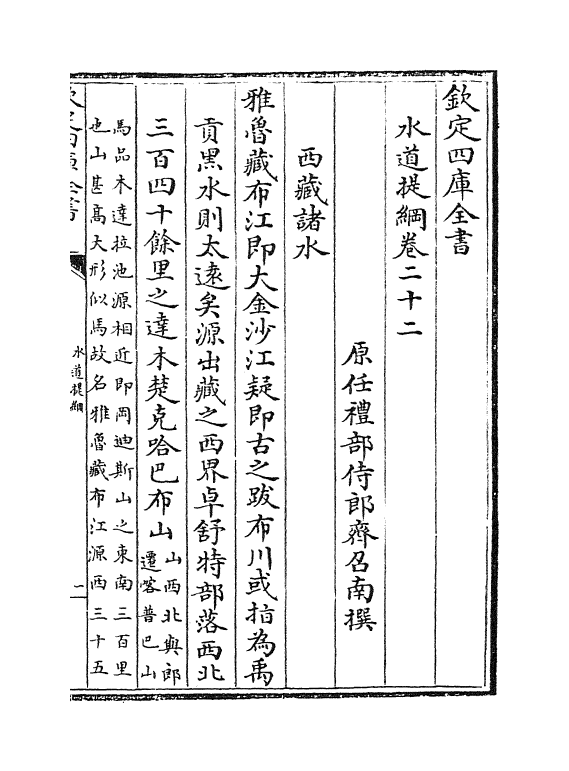 欽定四庫全書
水道提綱卷二十二
原任禮部侍郎齊召南撰
西藏諸水
雅魯藏布江即大金沙江疑即古之跋布川或指為禹
貢黑水則太遠矣源出藏之西界卓舒特部落西北
三百四十餘里之達木楚克哈巴布山
山西北與郎
遷喀普巴山
馬品木達拉池源相近即岡迪斯山之東南三百里
也山甚高大形似馬故名雅魯藏布江源西三十五
欽定四庫全書
水道提綱
一